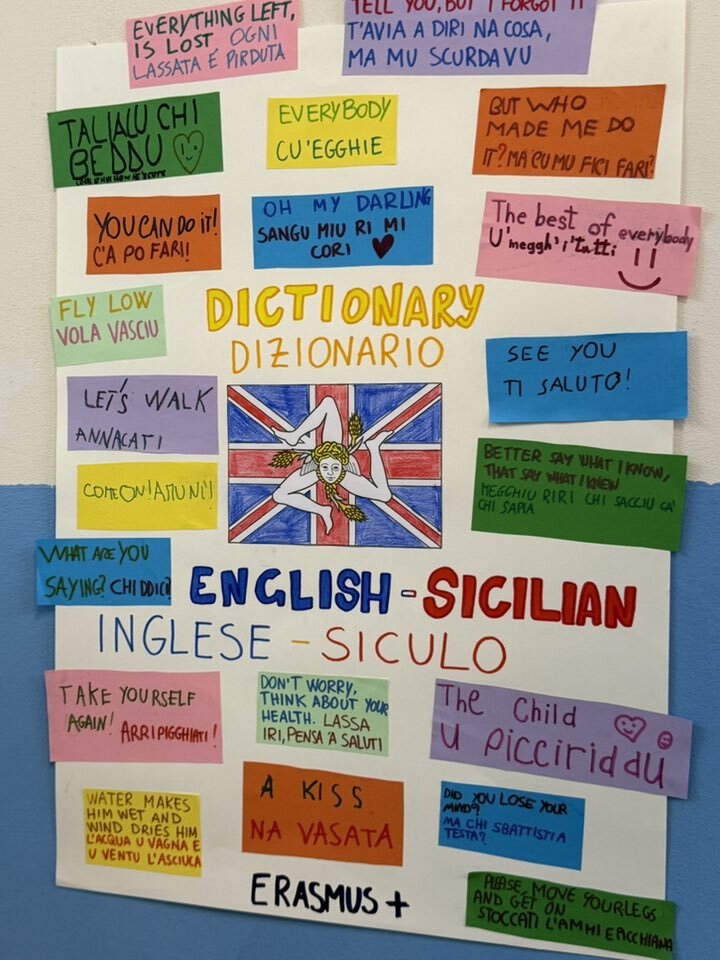 EVERYTHING LEFT,
IS LOST OGNI
LASSATA É PIRDUTA
TELL YOU, BUT I FORGOT IT
T'AVIA A DIRI NA COSA,
MA MU SCURDAVU
TALIALU CHI
BEDDU
LOOK AT HIM HOW HE'S CUTE
EVERYBODY
CU'EGGHIE
BUT WHO
MADE ME DO
IT? MA CU MU FICI FARI?
YOU CAN DO IT!
C'A PO FARI!
OH MY DARLING
SANGU MIU RI MI
CORI
The best of everybody
U'meggh'i'tutti
FLY LOW
VOLA VASCIU
DICTIONARY
DIZIONARIO
SEE YOU
TI SALUTO!
LET'S WALK
ANNACATI
COME ON! AMUNI'!
BETTER SAY WHAT I KNOW,
THAT SAY WHAT I KNEW
MEGGHIU RIRI CHI SACCIU CA'
CHI SAPIA
WHAT ARE YOU
SAYING? CHI DDICI?
ENGLISH - SICILIAN
INGLESE - SICULO
TAKE YOURSELF
AGAIN! ARRIPIGGHIATI!
DON'T WORRY,
THINK ABOUT YOUR
HEALTH. LASSA
IRI, PENSA 'A SALUTI
The Child
U PICCIRIDDU
WATER MAKES
HIM WET AND
WIND DRIES HIM
L'ACQUA U VAGNA E
U VENTU L'ASCIUCA
A KISS
NA VASATA
DID YOU LOSE YOUR
MIND?
MA CHI SBATTISTI A
TESTA?
ERASMUS +
PLEASE MOVE YOUR LEGS
AND GET ON
STOCCATI L'AMMI E ACCHIANA